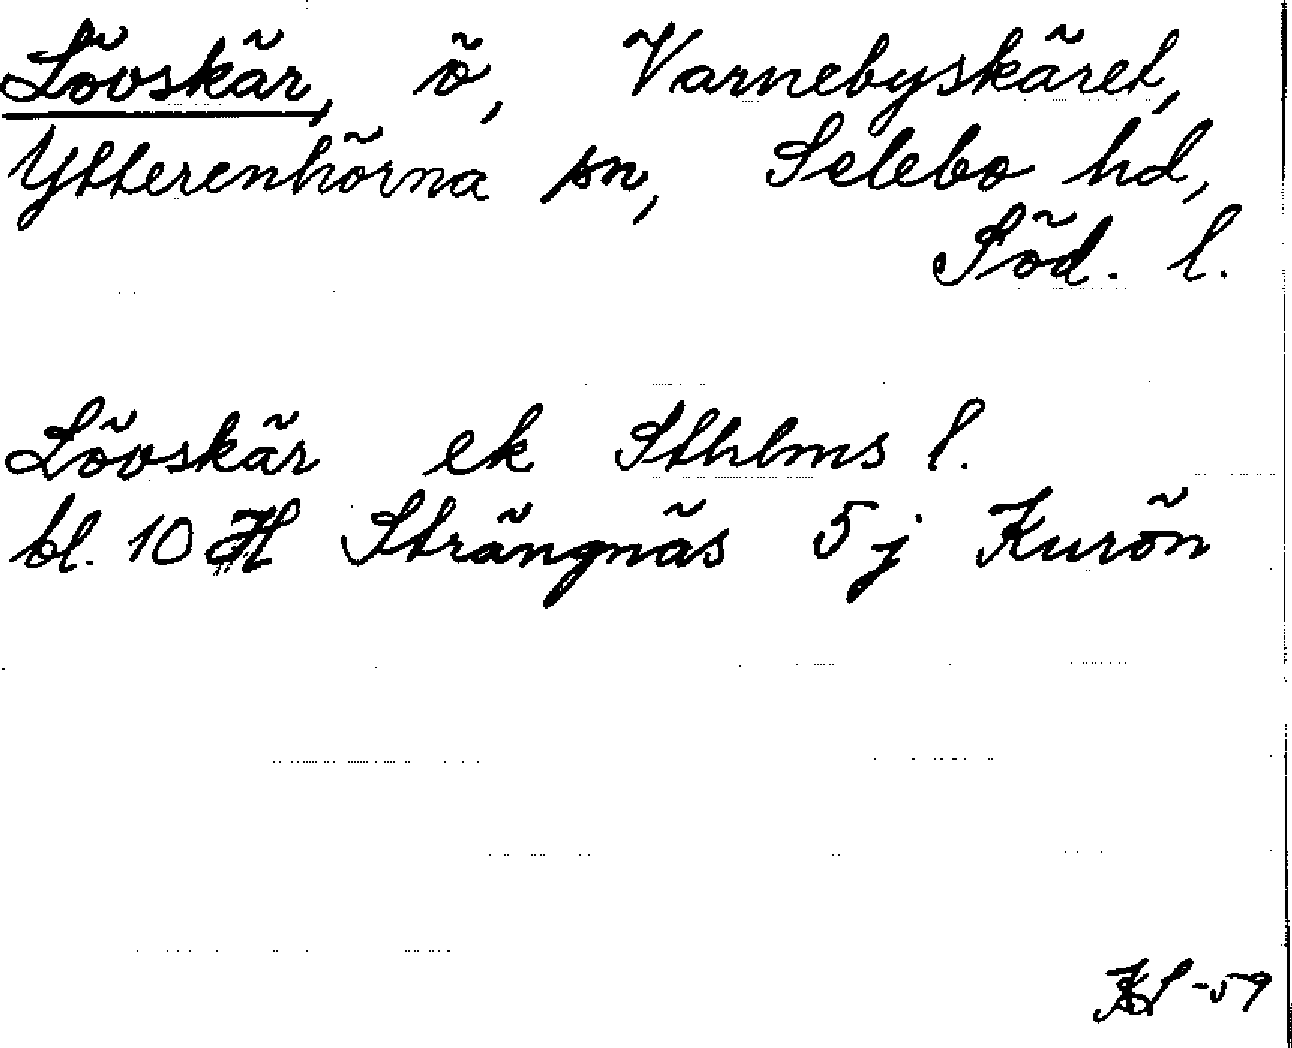 Lövskär, ö, Varnebyskäret,
Ytterenhörna sn, Selebo hd,
Söd. l.
Lövskär ek Sthlms l.
bl. 10 H Strängnäs 5 j Kurön
-59